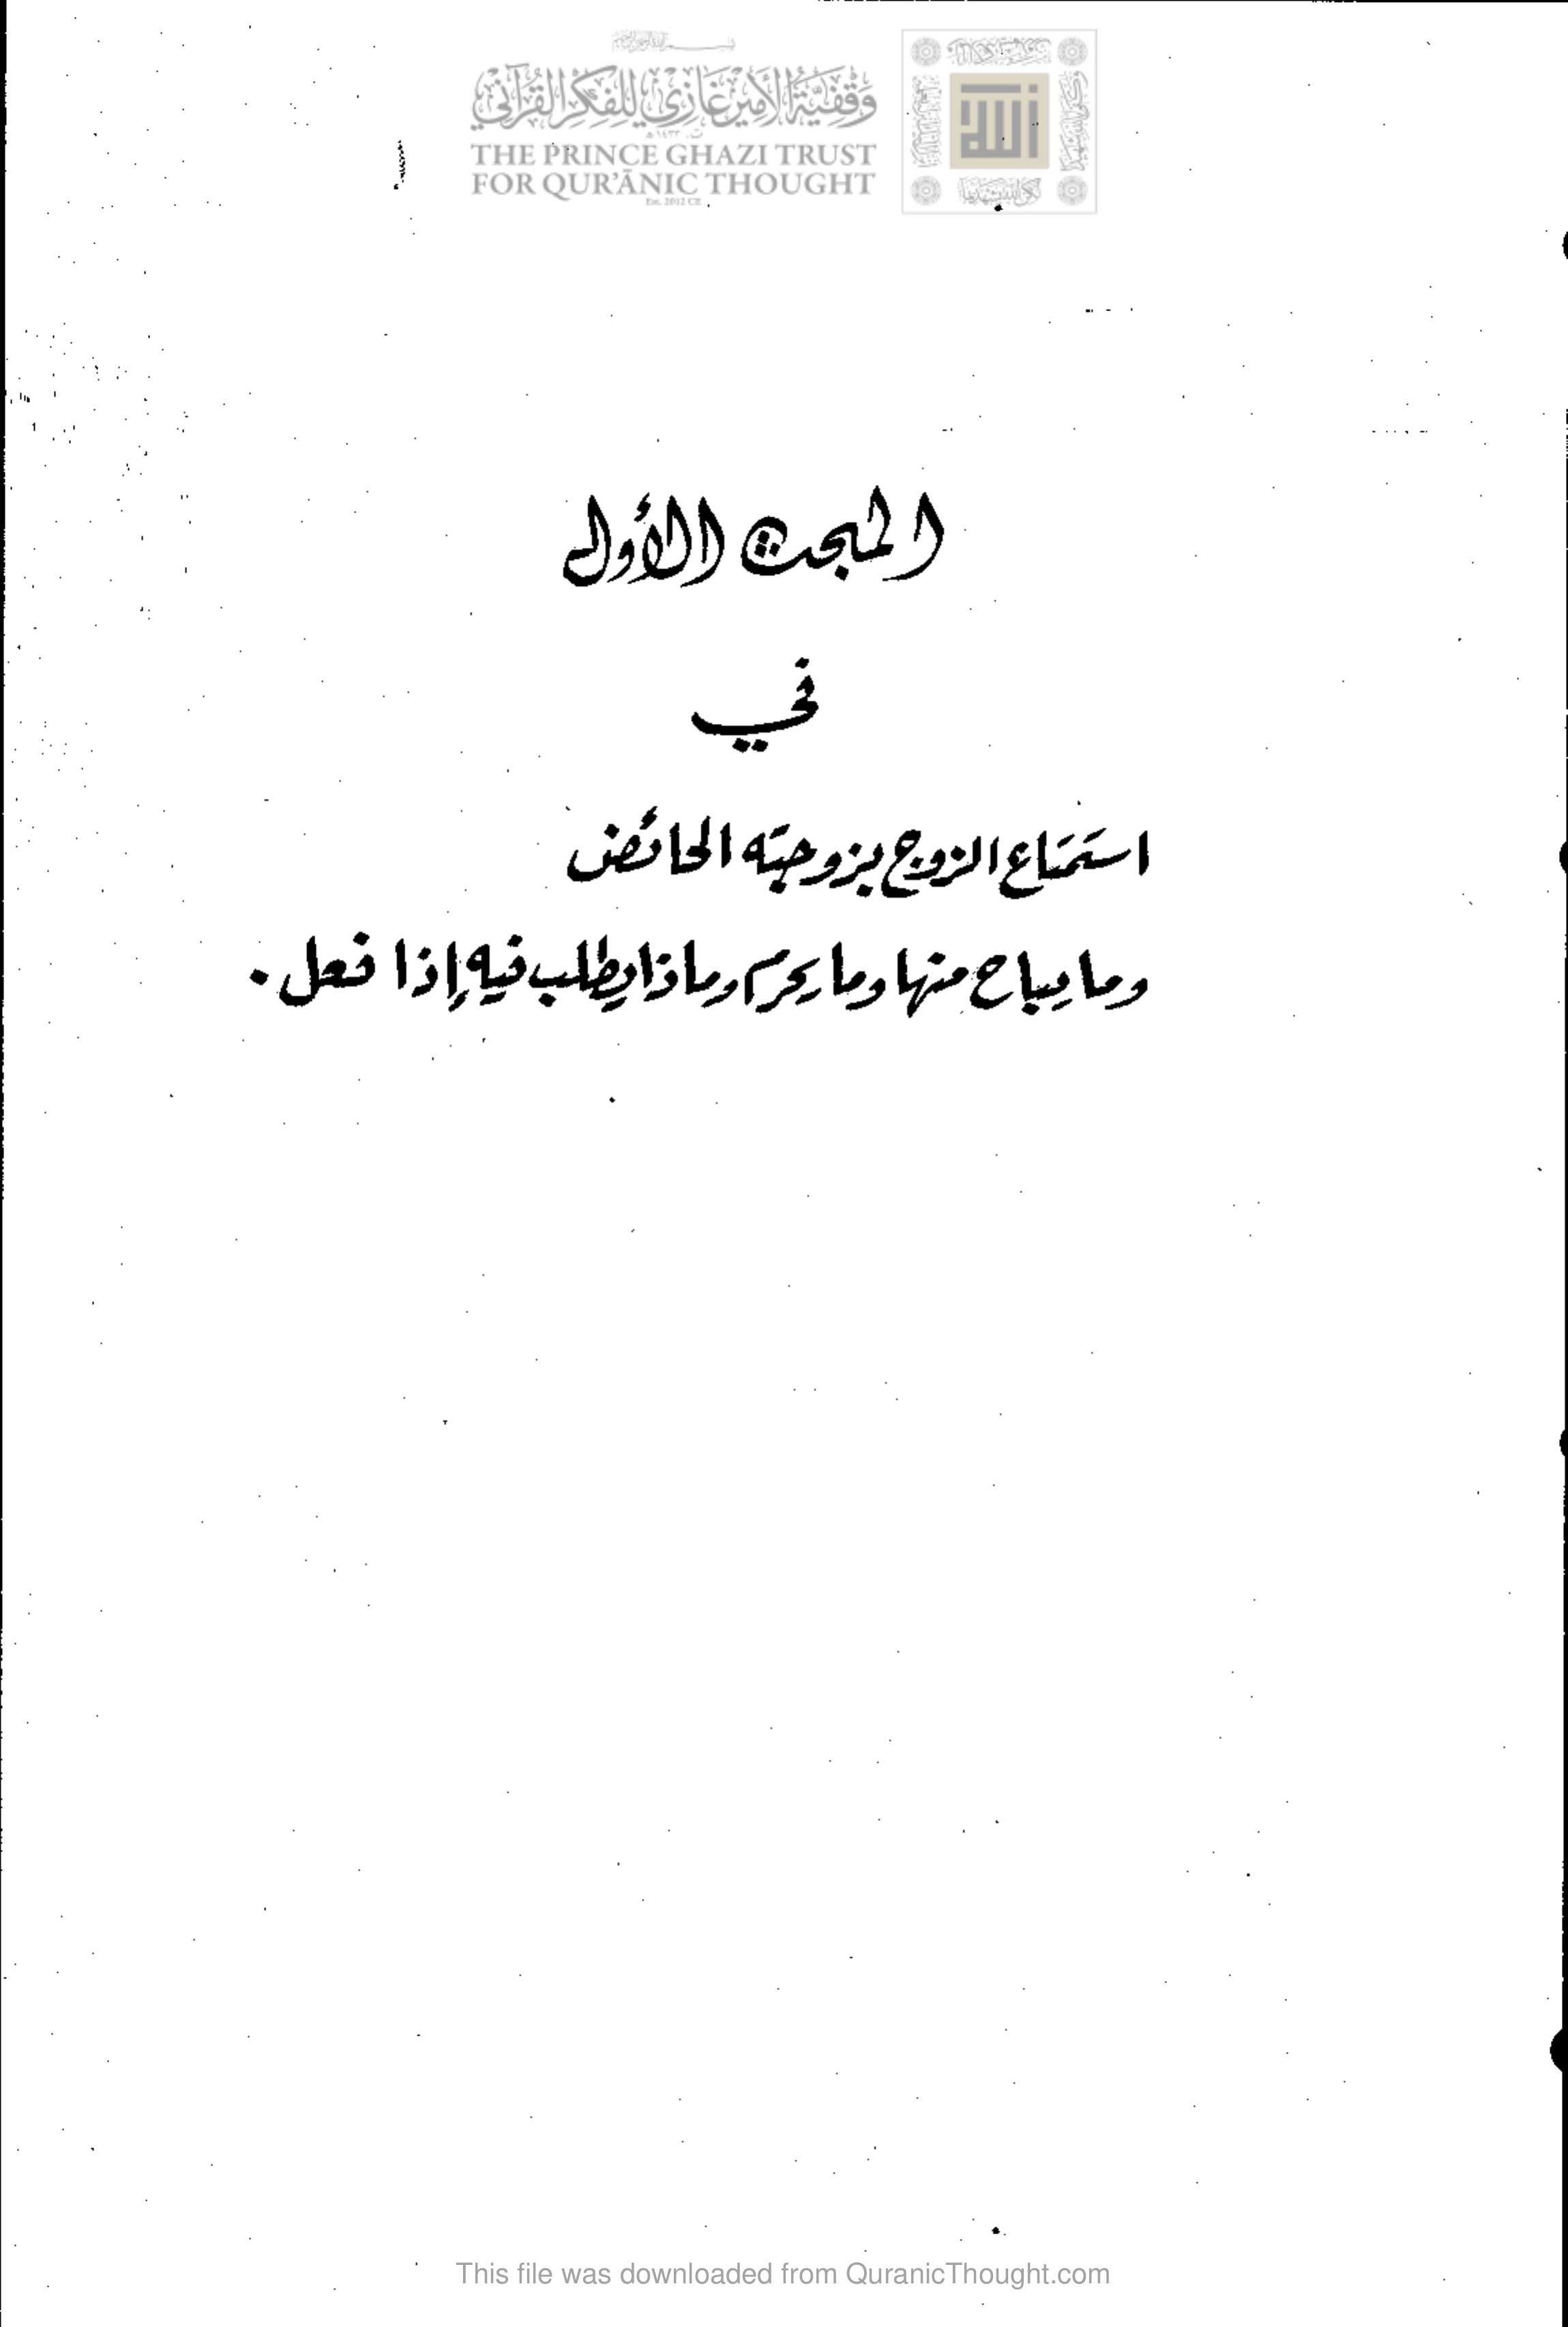 وَقْفِيَّةُ الأَمِيرِ غَازِي لِلْفِكْرِ القُرْآنِيّ
THE PRINCE GHAZI TRUST
FOR QUR'ĀNIC THOUGHT
Est. 2012 CE
المبحث الأول
في
استمتاع الزوج بزوجته الحائض
وما يباح منها وما يحرم وماذا يطلب فيه إذا فعل .
This file was downloaded from QuranicThought.com